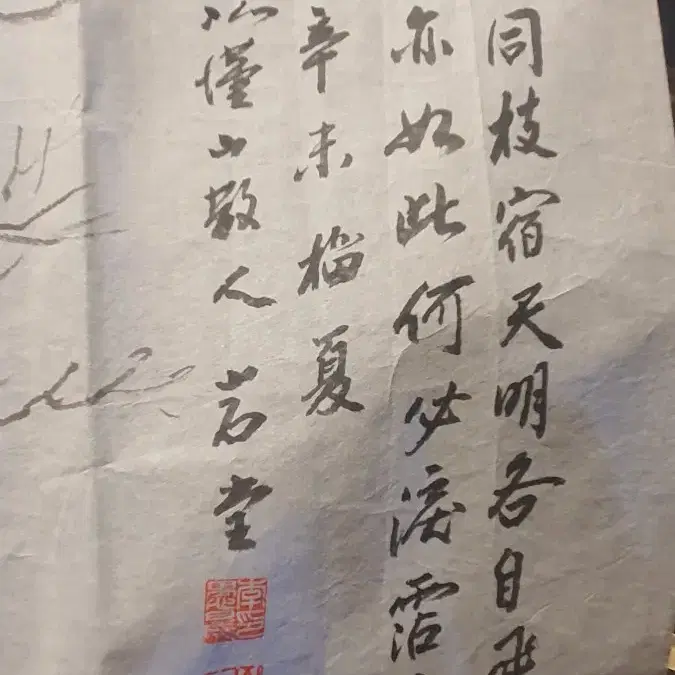 同枝宿天明各自飛
亦如此何必淚霑
辛未榴夏
山散人 若堂